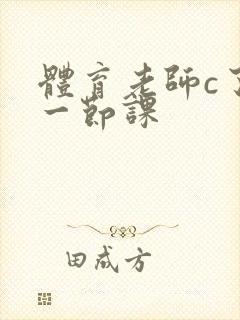 體育老師c了
一節課
田成方